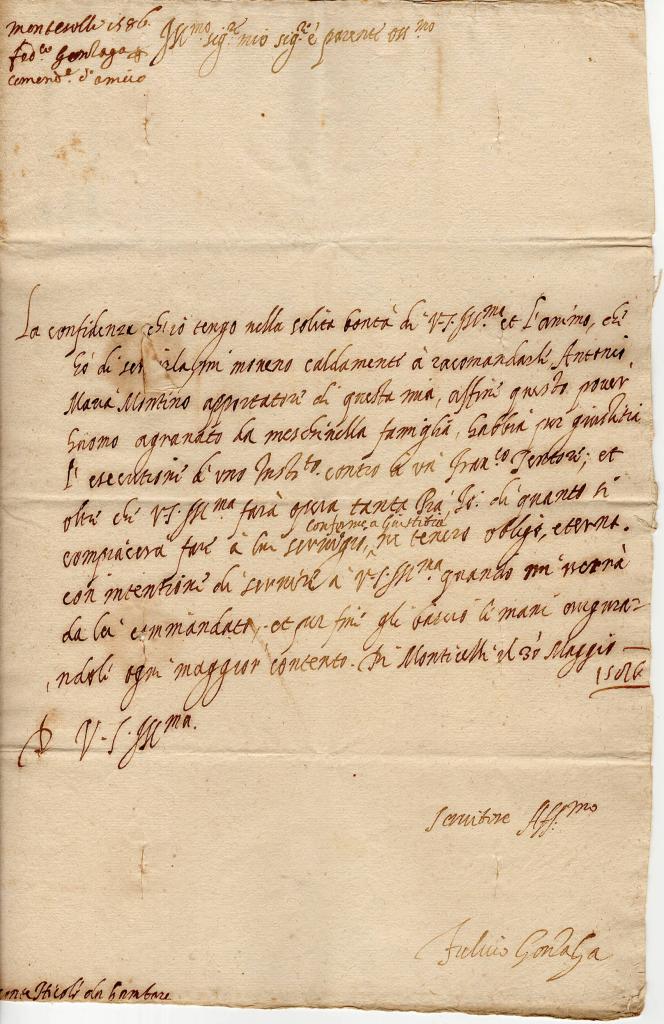 Montecelli 1586.
fed.co Gonzaga
comend.e d'amico
Ill.mo sig.re mio sig.re e parente oss.mo
La confidenza ch'io tengo nella solita bontà di V.S. Ill.ma et l'animo, che
hò di servirla, mi moveno caldamente à racomandarle Antonio
Maria Montino apportatore di questa mia, affine questo pover
huomo agravato da meschinella famiglia, habbia per giustitia
l'esecutione d'uno Inst.to contro di un Fran.co ; et
oltre che V.S. Ill.ma farà opera tanta Pia, Io. di quanto si
conforme a Giustitia
compiacerà fare à lui servigio, ne tenerò obligo, eterno.
con intentione di servire à V.S. Ill.ma quando mi verrà
da lei commandato, et per fine gli bascio le mani augura-
ndoli ogni maggior contento. Di Monticelli il 30 Maggio
1586
D V.S. Ill.ma.
Servitore Aff.mo
Fulvio Gonzaga
Conte Nicolò da Gambara